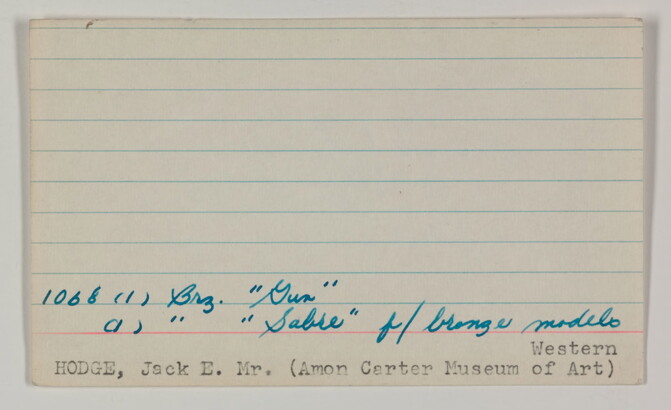 1068 (1) Brz. "Gun"
(1) " "Sabre" f/ bronze models
Western
HODGE, Jack E. Mr. (Amon Carter Museum of Art)